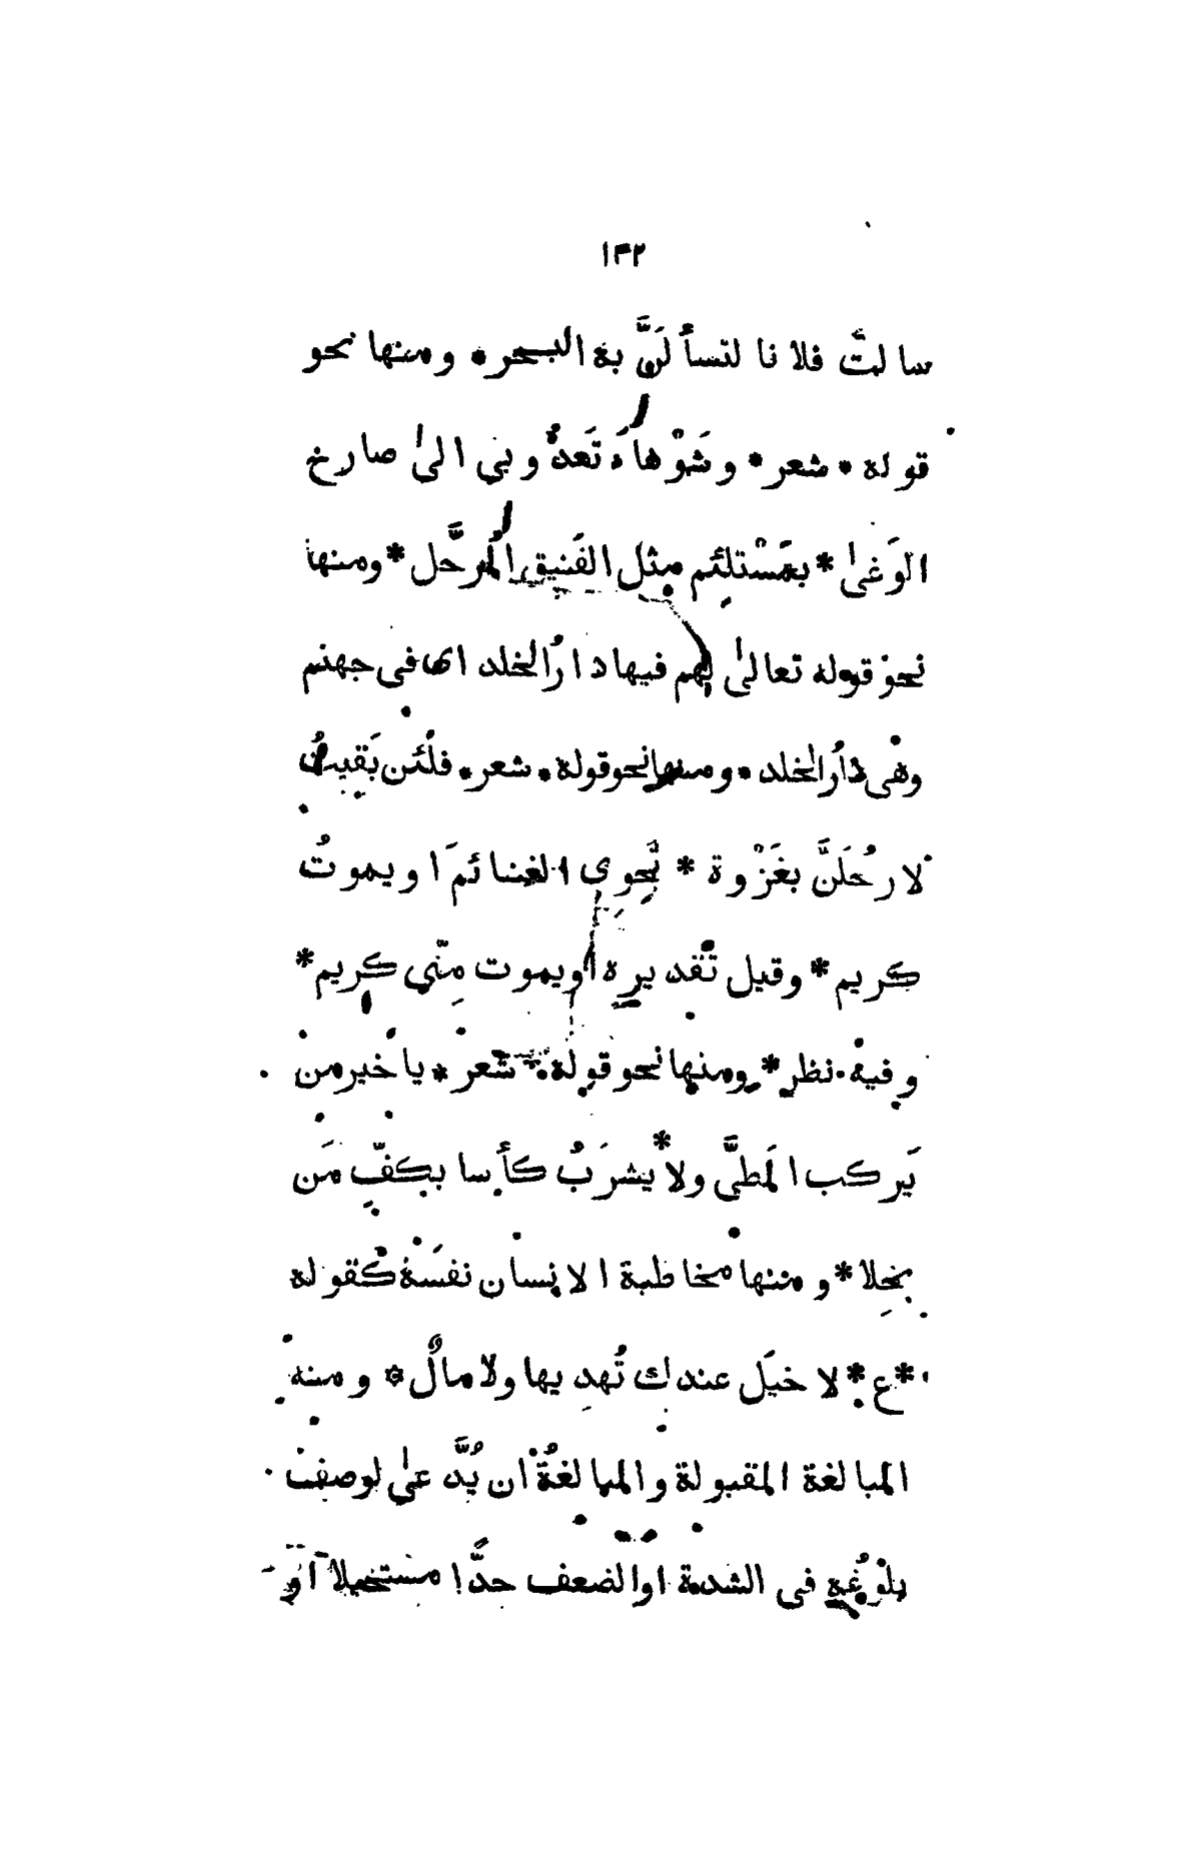 ١٣٢
سالتَ فلانا لتسأَلَنَّ به البحر * ومنها نحو
قوله * شعر * وشَوْهاءَ تَعدُوبي الىٰ صارخ
الوَغىٰ * بمَسْتلئِم مثل الفَنيق المُرحَّل * ومنها
نحو قوله تعالىٰ لهم فيها دارُ الخلد اى فى جهنم
وهى دارُ الخلد * ومنها نحو قوله * شعر * فلَئن بَقيتُ
لارحُلَنَّ بغَزْوة * تَحوِي الغنائمَ اويموتُ
كريم * وقيل تقديره اويموت مِنّي كريم *
وفيه نظر * ومنها نحو قوله * شعر * يا خيرمن
يَركب المَطىَّ ولا * يشرَبُ كأسا بكفِّ مَن
بخِلا * ومنها مخاطبة الانسان نفسَهُ كقوله
* ع * لا خيَل عندك تُهديها ولا مالٌ * ومنه
المبالغة المقبولة والمبالغةُ ان يُدَّعىٰ لوصف
بلوغُه فى الشدة اوالضعف حدًّا مستحيلا اَو